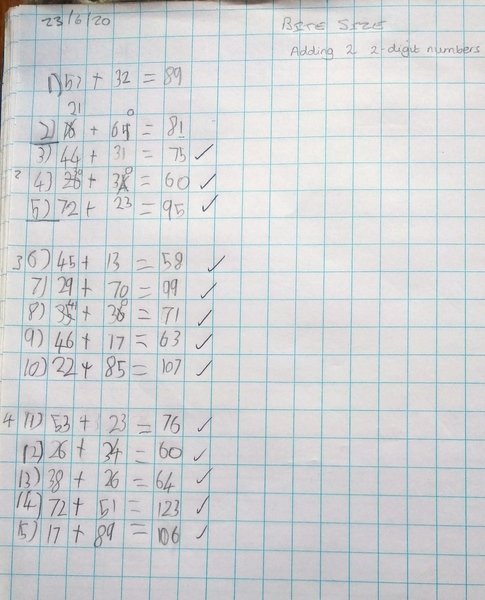 23/6/20
BITE SIZE
Adding 2 2-digit numbers
1) 57 + 32 = 89
21 0
2) 16 + 65 = 81
3) 44 + 31 = 75 ✓
2 4) 26 + 34 = 60 ✓
5) 72 + 23 = 95 ✓
3 6) 45 + 13 = 58 ✓
7) 29 + 70 = 99 ✓
8) 35 + 36 = 71 ✓
9) 46 + 17 = 63 ✓
10) 22 + 85 = 107 ✓
4 11) 53 + 23 = 76 ✓
12) 26 + 34 = 60 ✓
13) 38 + 26 = 64 ✓
14) 72 + 51 = 123 ✓
15) 17 + 89 = 106 ✓